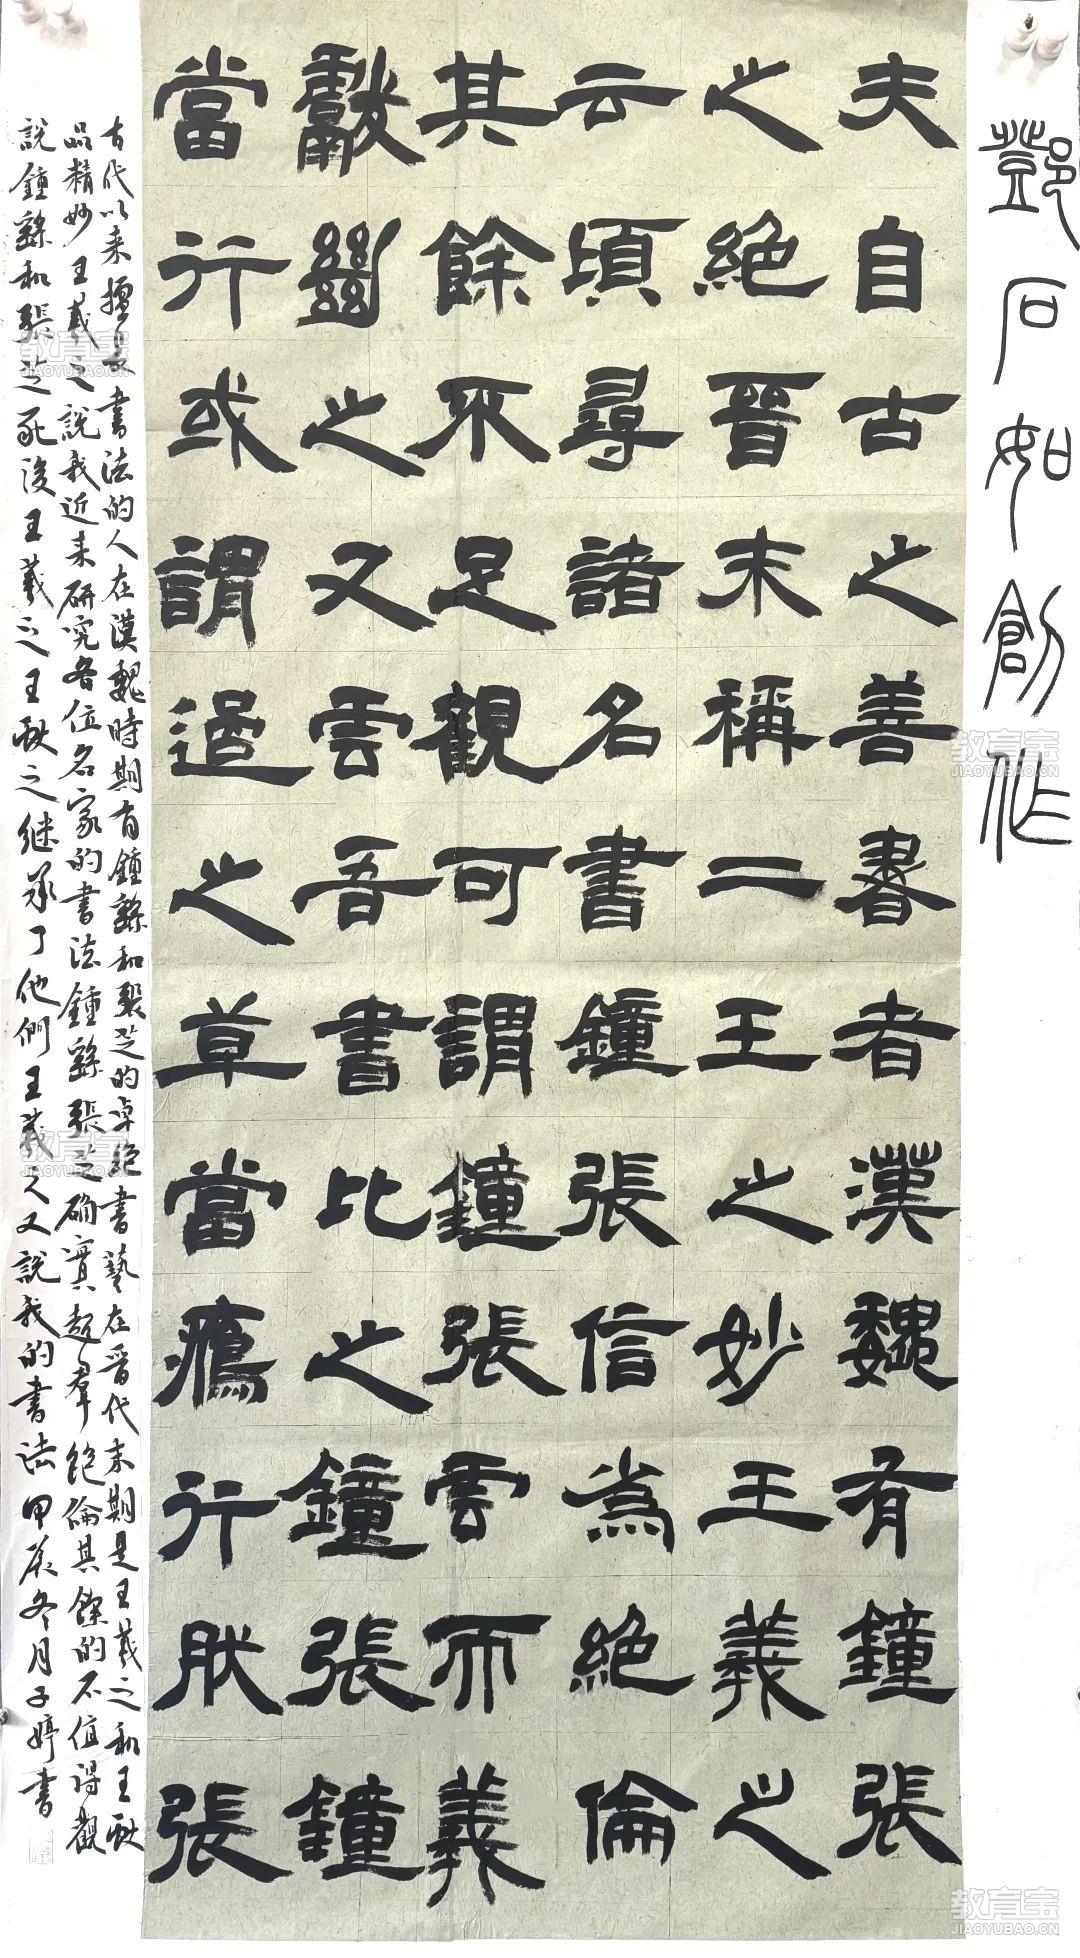 鄧石如創作
夫自古之善書者漢魏有鐘張
之絕晉末稱二王之妙王羲之
云頃尋諸名書鐘張信為絕倫
其餘不足觀可謂鐘張雲而羲
獻繼之又雲吾書比之鐘張鐘
當行或謂過之草當鴈行肰張
古代以来擅長書法的人在漢魏時期有鍾繇和張芝的卓絕書藝在晉代末期是王羲之和王献
品精妙王羲之說我近来研究各位名家的書法鍾繇張芝确實超羣絕倫其餘的不值得觀
說鍾繇和張芝死後王羲之王献之继承了他們王羲之又說我的書法甲辰冬月子婷書
教育宝
JIAOYUBAO.CN
教育宝
JIAOYUBAO.CN
教育宝
JIAOYUBAO.CN
教育宝
JIAOYUBAO.CN